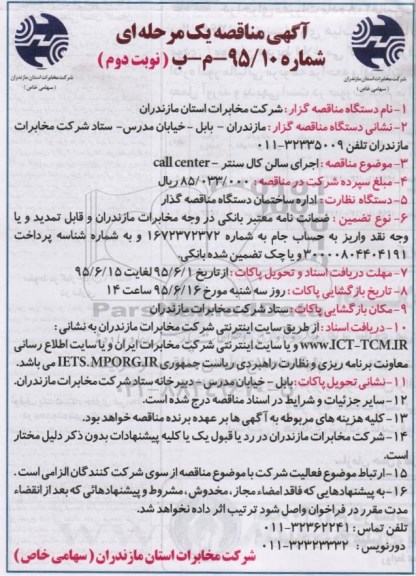 آگهی مناقصه یک مرحله ای
شماره ۹۵/۱۰-م-ب (نوبت دوم)
شرکت مخابرات استان مازندران
(سهامی خاص)
شرکت مخابرات استان مازندران
(سهامی خاص)
۱- نام دستگاه مناقصه گزار: شرکت مخابرات استان مازندران
۲- نشانی دستگاه مناقصه گزار: مازندران - بابل - خیابان مدرس- ستاد شرکت مخابرات
مازندران تلفن ۳۲۳۳۵۰۰۹-۰۱۱
۳- موضوع مناقصه: اجرای سالن کال سنتر - call center
۴- مبلغ سپرده شرکت در مناقصه: ۸۵/۰۳۳/۰۰۰ ریال
۵- دستگاه نظارت: اداره ساختمان دستگاه مناقصه گذار
۶- نوع تضمین: ضمانت نامه معتبر بانکی در وجه مخابرات مازندران و قابل تمدید و یا
وجه نقد واریز به حساب جام به شماره ۱۶۷۲۳۷۲۳۷۲ و به شماره شناسه پرداخت
۳۰۰۰۰۸۰۴۴۰۴۱۹۱ و یا چک تضمین شده بانکی.
۷- مهلت دریافت اسناد و تحویل پاکات: از تاریخ ۹۵/۶/۱ لغایت ۹۵/۶/۱۵
۸- تاریخ بازگشایی پاکات: روز سه شنبه مورخ ۹۵/۶/۱۶ ساعت ۱۴
۹- مکان بازگشایی پاکات: ستاد شرکت مخابرات مازندران
۱۰- دریافت اسناد: از طریق سایت اینترنتی شرکت مخابرات مازندران به نشانی:
www.ICT-TCM.IR و یا سایت اینترنتی شرکت مخابرات ایران و یا سایت اطلاع رسانی
معاونت برنامه ریزی و نظارت راهبردی ریاست جمهوری IETS.MPORG.IR می باشد.
۱۱- نشانی تحویل پاکات: بابل- خیابان مدرس- دبیرخانه ستاد شرکت مخابرات مازندران.
۱۲- سایر جزئیات و شرایط در اسناد مناقصه درج شده است.
۱۳- کلیه هزینه های مربوطه به آگهی ها بر عهده برنده مناقصه خواهد بود.
۱۴- شرکت مخابرات مازندران در رد یا قبول یک یا کلیه پیشنهادات بدون ذکر دلیل مختار
است.
۱۵- ارتباط موضوع فعالیت شرکت با موضوع مناقصه از سوی شرکت کنندگان الزامی است.
۱۶- به پیشنهادهایی که فاقد امضاء مجاز، مخدوش، مشروط و پیشنهادهائی که بعد از انقضاء
مدت مقرر در فراخوان واصل شود ترتیب اثر داده نخواهد شد.
تلفن تماس: ۳۲۳۶۲۲۴۱-۰۱۱
دورنویس: ۳۲۳۲۳۳۳۲-۰۱۱
شرکت مخابرات استان مازندران (سهامی خاص)